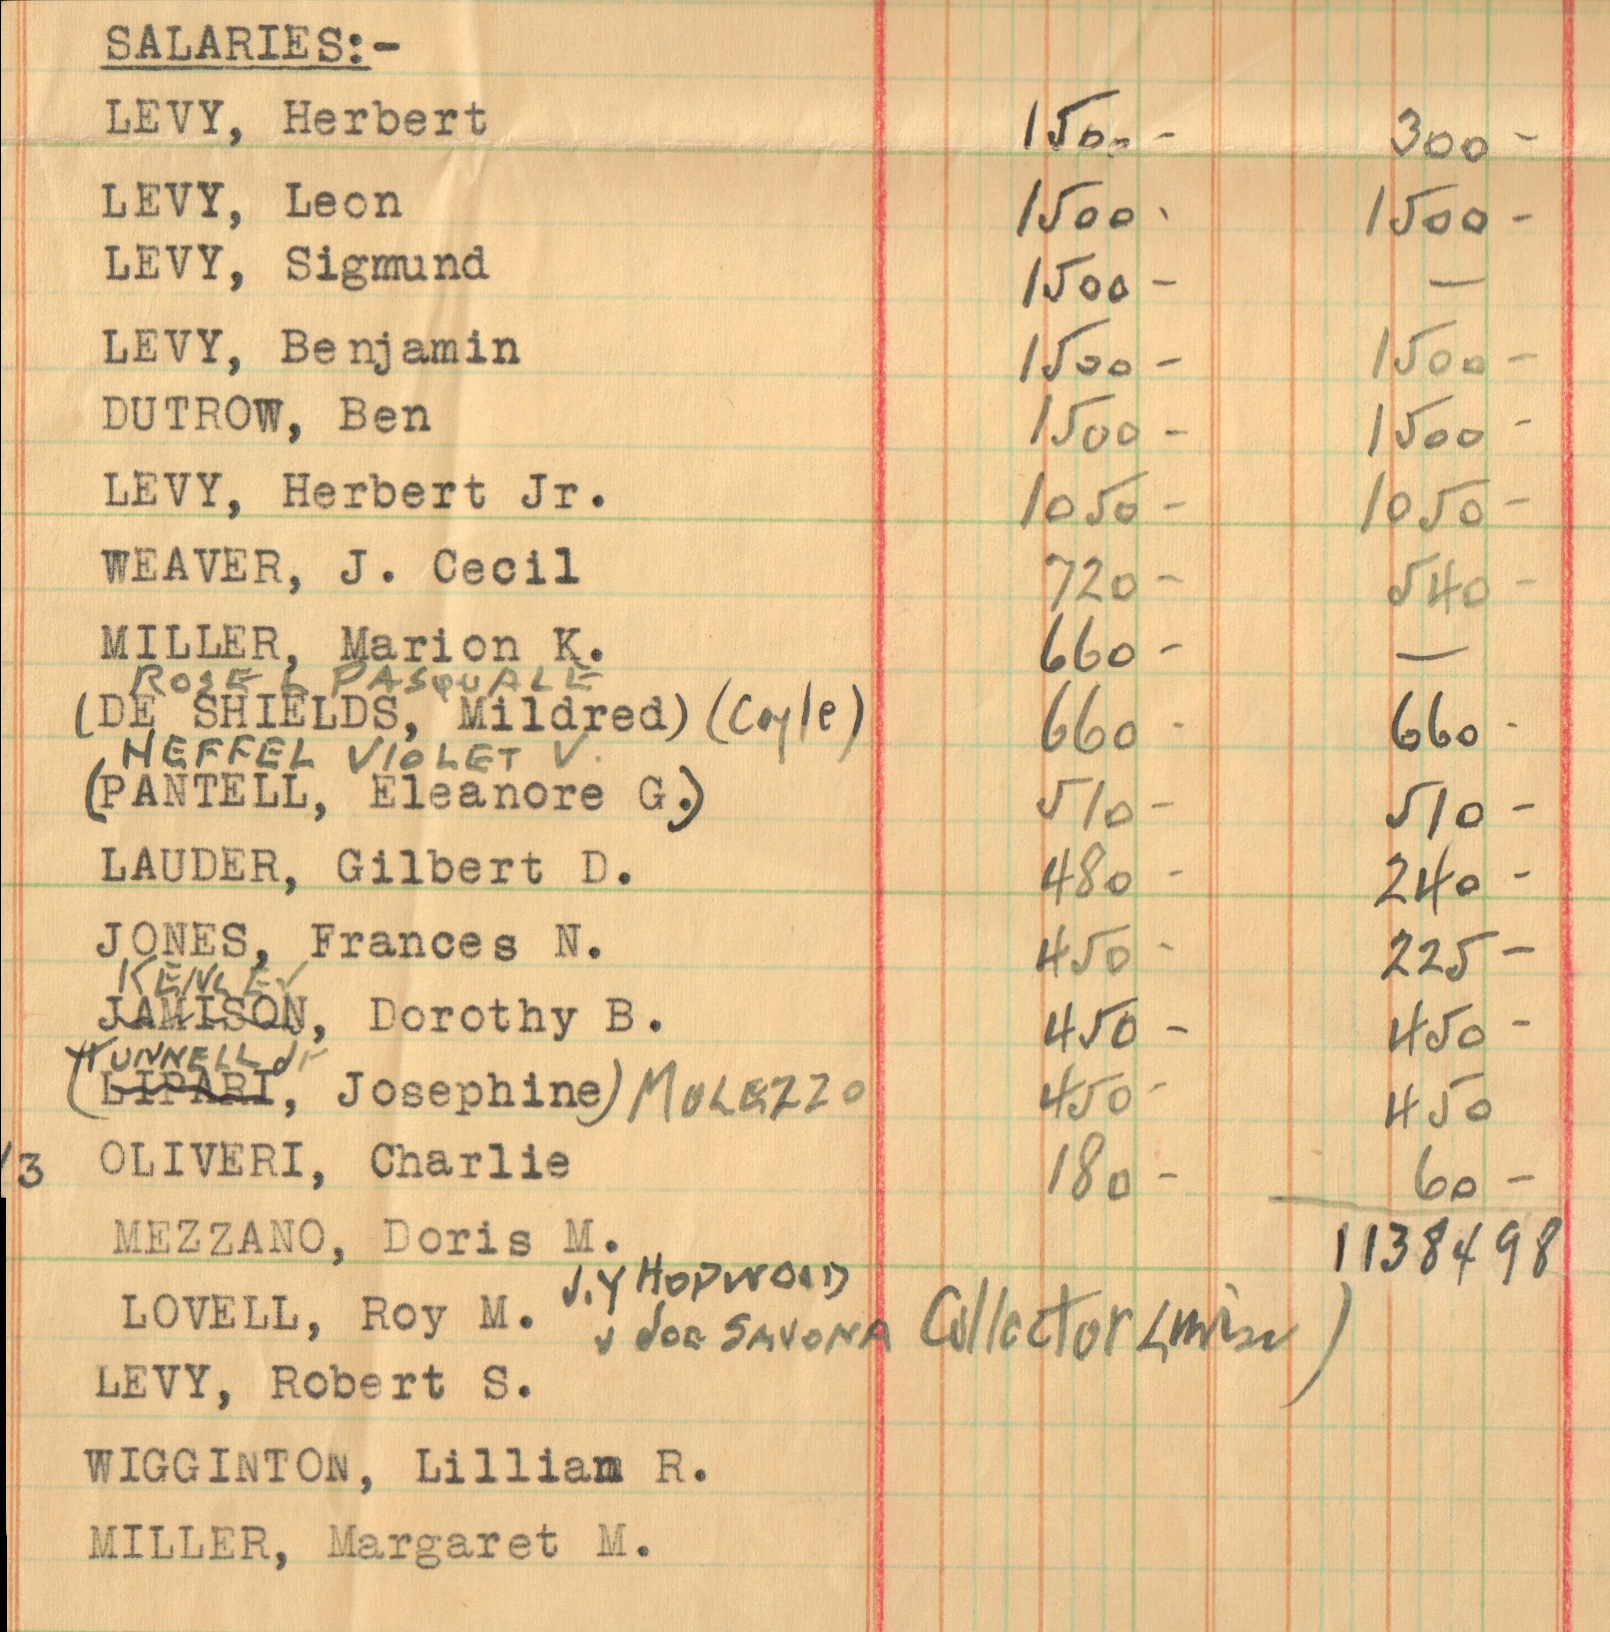 SALARIES:-
LEVY, Herbert 1500- 300-
LEVY, Leon 1500- 1500-
LEVY, Sigmund 1500- —
LEVY, Benjamin 1500- 1500-
DUTROW, Ben 1500- 1500-
LEVY, Herbert Jr. 1050- 1050-
WEAVER, J. Cecil 720- 540-
MILLER, Marion K. 660- —
ROSE L PASQUALE
(DE SHIELDS, Mildred) (Coyle) 660- 660-
HEFFEL VIOLET V.
(PANTELL, Eleanore G.) 510- 510-
LAUDER, Gilbert D. 480- 240-
JONES, Frances N. 450- 225-
KENLEY
JAMISON, Dorothy B. 450- 450-
TUNNELL
(LIPARI, Josephine) MOLEZZO 450- 450
/3 OLIVERI, Charlie 180- 60-
MEZZANO, Doris M. 1138498
J.Y HOPWOOD
LOVELL, Roy M.
JOE SAVONA Collector )
LEVY, Robert S.
WIGGINTON, Lillian R.
MILLER, Margaret M.